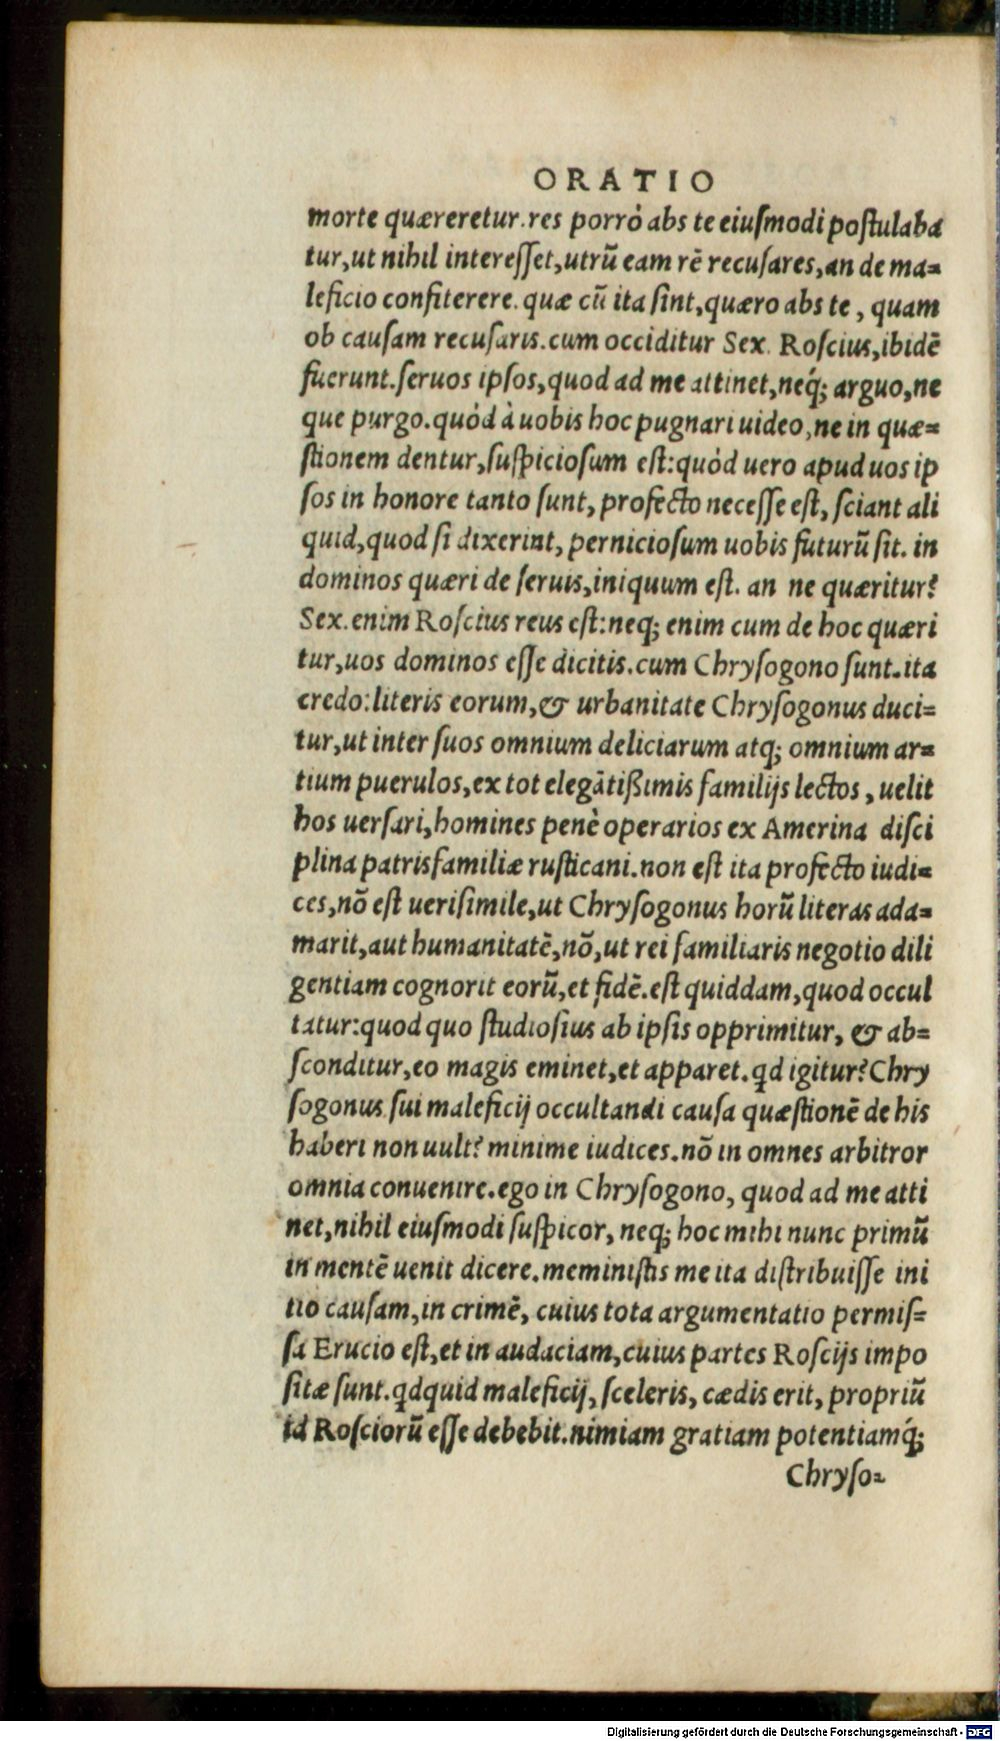 ORATIO
morte quæreretur. res porrò abs te eiuſmodi poſtulaba
tur, ut nihil intereſſet, utrū eam rē recuſares, an de ma=
leficio confiterere. quæ cū ita ſint, quæro abs te, quam
ob cauſam recuſaris. cum occiditur Sex. Roſcius, ibidē
fuerunt. ſeruos ipſos, quod ad me attinet, neq́; arguo, ne
que purgo. quòd à uobis hoc pugnari uideo, ne in quæ=
ſtionem dentur, ſuſpicioſum eſt: quòd uero apud uos ip
ſos in honore tanto ſunt, profecto neceſſe eſt, ſciant ali
quid, quod ſi dixerint, pernicioſum uobis futurū ſit. in
dominos quæri de ſeruis, iniquum eſt. an ne quæritur?
Sex. enim Roſcius reus eſt: neq; enim cum de hoc quæri
tur, uos dominos eſſe dicitis. cum Chryſogono ſunt. ita
credo: literis eorum, & urbanitate Chryſogonus duci=
tur, ut inter ſuos omnium deliciarum atq; omnium ar=
tium puerulos, ex tot elegātißimis familijs lectos, uelit
hos uerſari, homines penè operarios ex Amerina diſci
plina patrisfamiliæ ruſticani. non eſt ita profecto iudi=
ces, nō eſt ueriſimile, ut Chryſogonus horū literas ada=
marit, aut humanitatē, nō, ut rei familiaris negotio dili
gentiam cognorit eorū, et fidē. eſt quiddam, quod occul
tatur: quod quo ſtudioſius ab ipſis opprimitur, & ab=
ſconditur, eo magis eminet, et apparet. qd igitur? Chry
ſogonus ſui maleficij occultandi cauſa quæſtionē de his
haberi non uult? minime iudices. nō in omnes arbitror
omnia conuenire. ego in Chryſogono, quod ad me atti
net, nihil eiuſmodi ſuſpicor, neq; hoc mihi nunc primū
in mentē uenit dicere. meminiſtis me ita diſtribuiſſe ini
tio cauſam, in crimē, cuius tota argumentatio permiſ=
ſa Erucio eſt, et in audaciam, cuius partes Roſcijs impo
ſitæ ſunt. qdquid maleficij, ſceleris, cædis erit, propriū
id Roſciorū eſſe debebit. nimiam gratiam potentiamq́;
Chryſo=
Digitalisierung gefördert durch die Deutsche Forschungsgemeinschaft - DFG